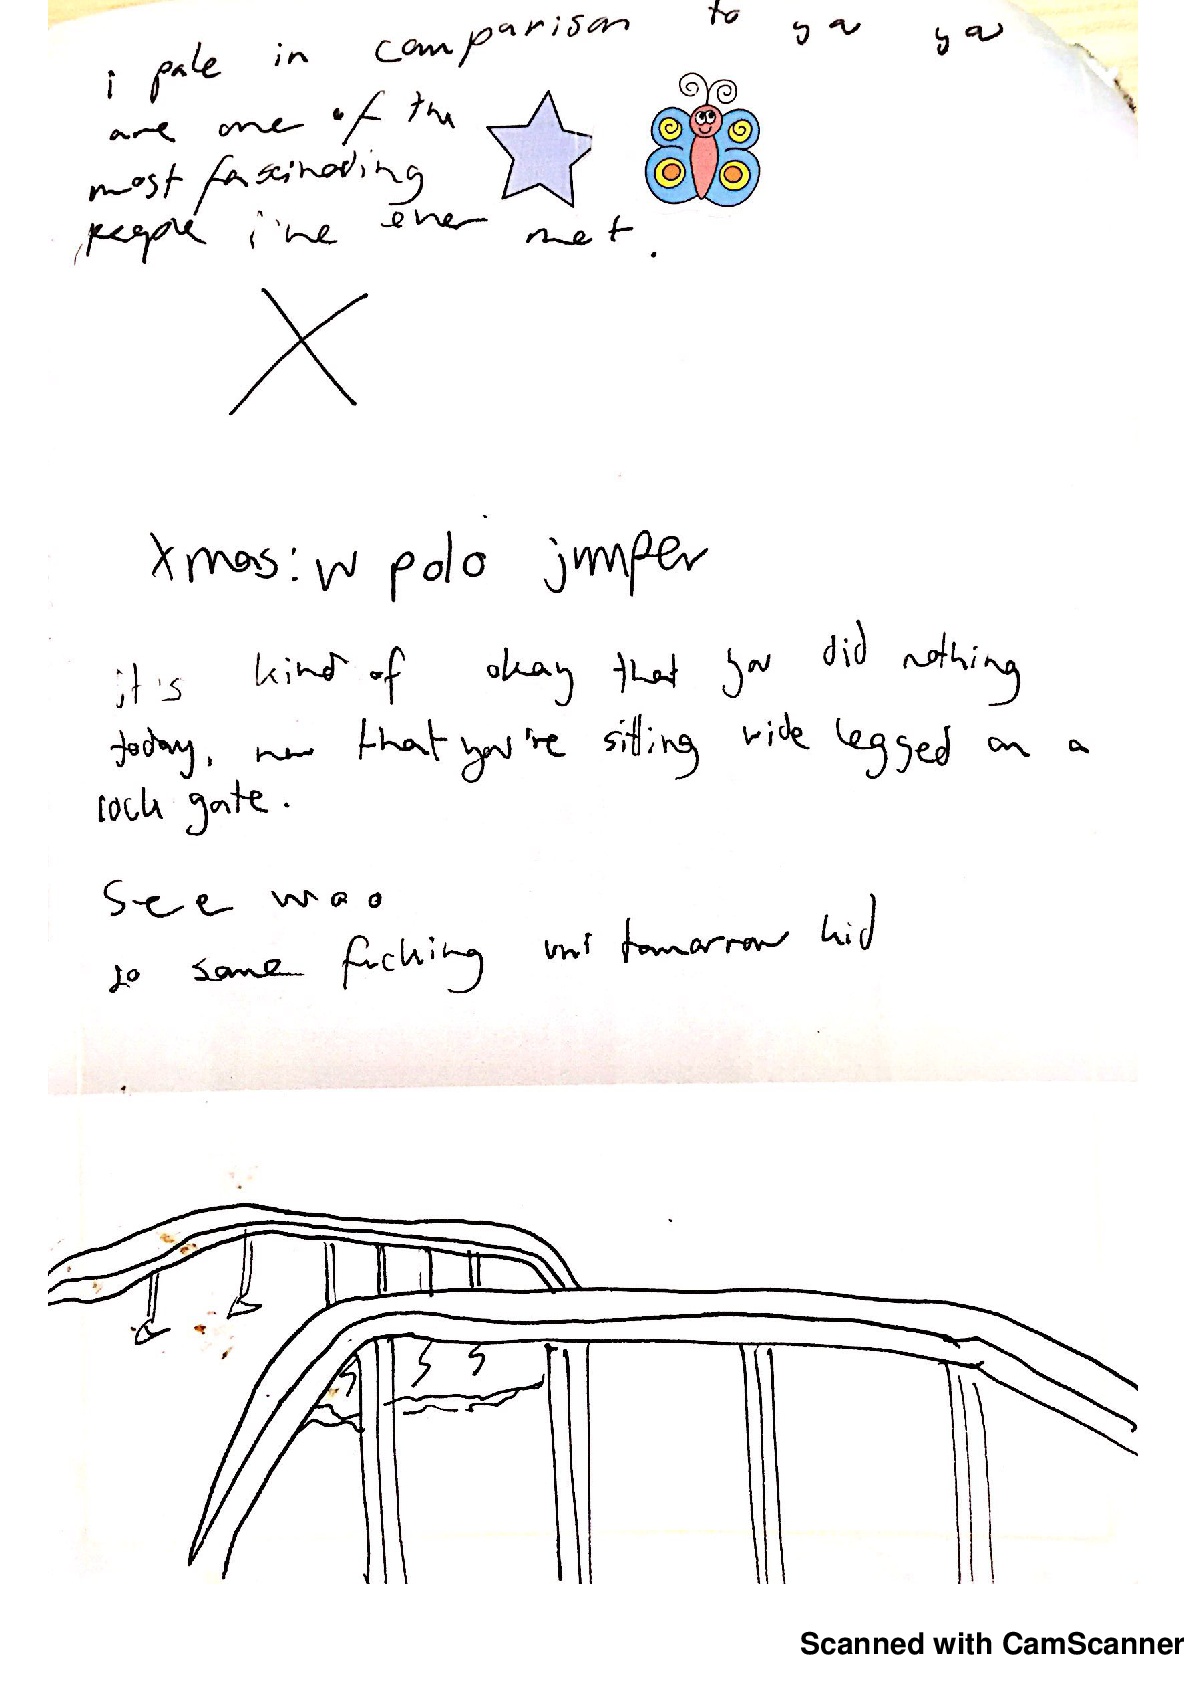 i pale in comparison to ya ya
are one of the
most fascinating
people i've ever met.
X
Xmas: w polo jumper
it's kind of okay that you did nothing
today, now that you're sitting wide legged on a
rock gate.
See
so some fucking uni tomorrow kid
Scanned with CamScanner